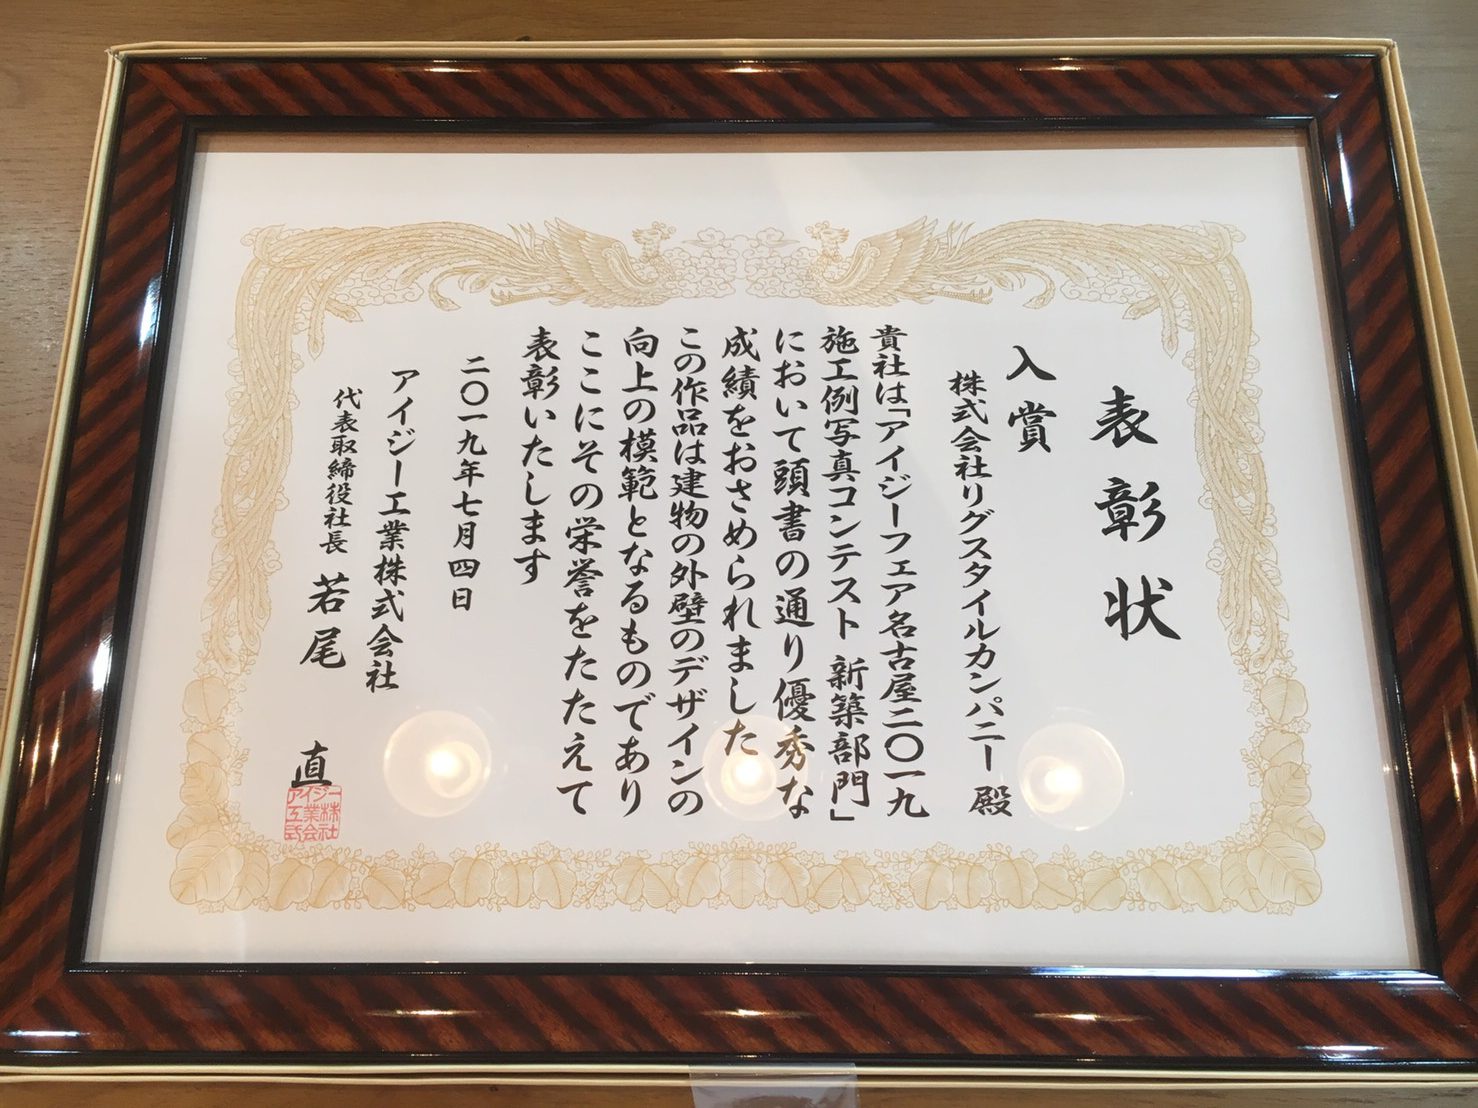 表彰状
入賞
株式会社リグスタイルカンパニー 殿
貴社は「アイジーフェア名古屋二〇一九
施工例写真コンテスト 新築部門」
において頭書の通り優秀な
成績をおさめられました
この作品は建物の外壁のデザインの
向上の模範となるものであり
ここにその栄誉をたたえて
表彰いたします
二〇一九年七月四日
アイジー工業株式会社
代表取締役社長 若尾 直
アイジー工業株式会社